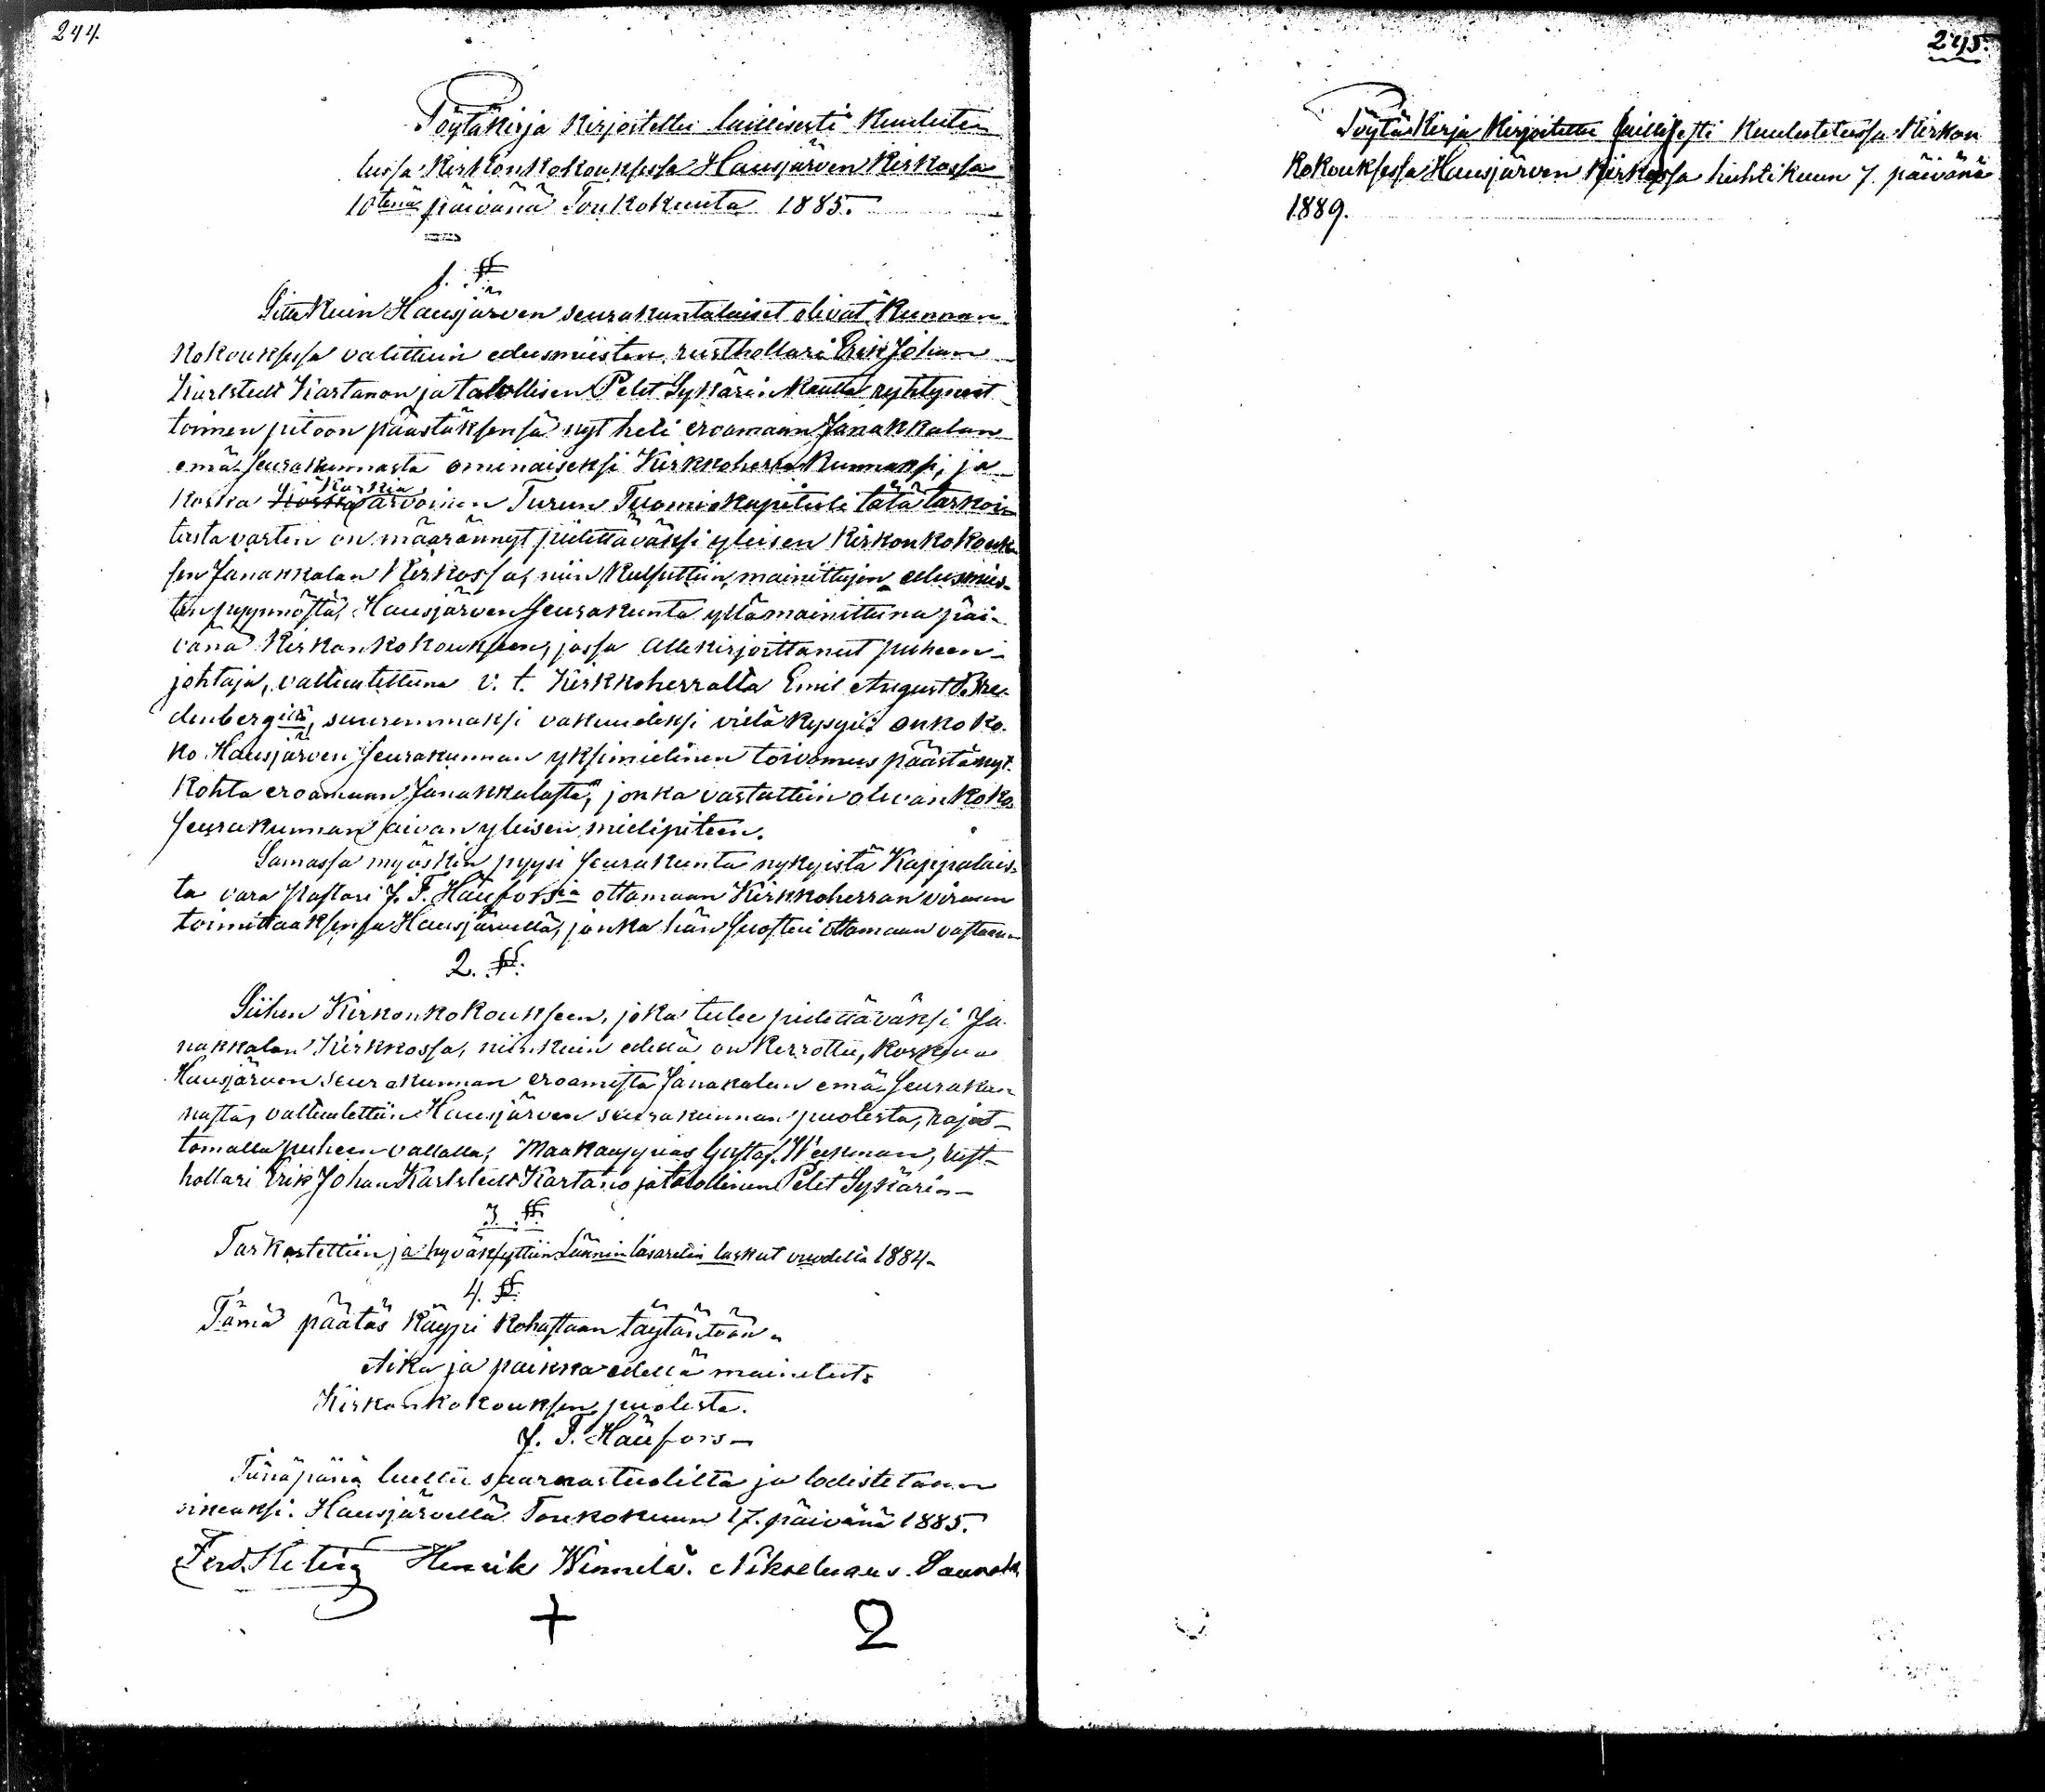 244.
Pöytäkirja kirjoitettu laillisesti kuulutetu
lussa Kirkonkokouksessa Hausjärven Kirkossa
10tenä päivänä Toukokuuta 1885.
1. §
Sitte kuin Hausjärven seurakuntalaiset olivat Kunnan-
kokouksessa valittuin edusmiesten rusthollari Erik Johan
Karlstedt Kartanon ja talollisen Pelet Sykärin kautta ryhtyneet
toimen pitoon päästäksensä nyt heti eroamaan Janakkalan
emä-seurakunnasta ominaiseksi Kirkkoherrakunnaksi, ja
koska Korkia arvoinen Turun Tuomiokapituli tätä tarkoi-
tusta varten on määrännyt pidettäväksi yleisen Kirkonkokouk-
sen Janakkalan Kirkossa, niin kutsuttiin, mainittujen edusmies-
ten pyynnöstä, Hausjärven seurakunta yllämainittuna päi-
vänä Kirkonkokoukseen, jossa allekirjoittanut puheen-
johtaja, valtuutettuna v. t. Kirkkoherralta Emil August Bre-
denbergiltä, suuremmaksi vakuudeksi vielä kysyi: onko ko-
ko Hausjärven seurakunnan yksimielinen toivomus päästä nyt
kohta eroamaan Janakkalasta, jonka vastattiin olevan koko
seurakunnan aivan yleisen mielipiteen.
Samassa myöskin pyysi seurakunta nykyistä Kappalais-
ta vara Pastori J. F. Häuforsia ottamaan Kirkkoherran viraan
toimittaaksensa Hausjärvellä, jonka hän suostui ottamaan vastaan.
2. §.
Siihen Kirkonkokoukseen, joka tulee pidettäväksi Ja-
nakkalan Kirkkossa, niinkuin edellä on kerrottu, koskeva
Hausjärven seurakunnan eroamista Janakalan emä-seurakun-
nasta, valtuutettiin Hausjärven seurakunnan puolesta, rajat-
tomalla puheenvallalla, Maakauppias Gustaf Weckman, rust-
hollari Erik Johan Karlstedt Kartano ja talollinen Pelet Sykäri.-
3. §.
Tarkastettiin ja hyväksyttiin Läänin lasaretin laskut vuodelta 1884.
4. §.
Tämä päätös käypi kohastaan täytäntöön.
Aika ja paikka edellä mainitut:
Kirkonkokouksen puolesta.
J. F. Häufors-
Tänäpänä luettu saarnastuolilta ja todistetaan
oikeaksi. Hausjärvellä Toukokuun 17. päivänä 1885.
Ferd. Heting Henrik Winnelä. Nikodemus
245.
Pöytäkirja kirjoitettu laillisesti kuulutetussa Kirkon
kokouksessa Hausjärven Kirkossa huhtikuun 7. päivänä
1889.